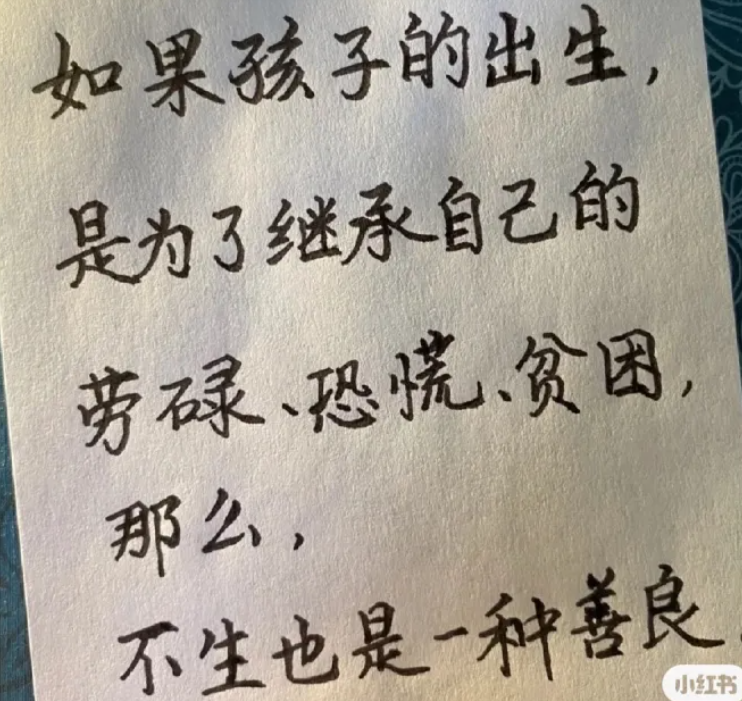 如果孩子的出生，
是为了继承自己的
劳碌、恐慌、贫困，
那么，
不生也是一种善良
小红书